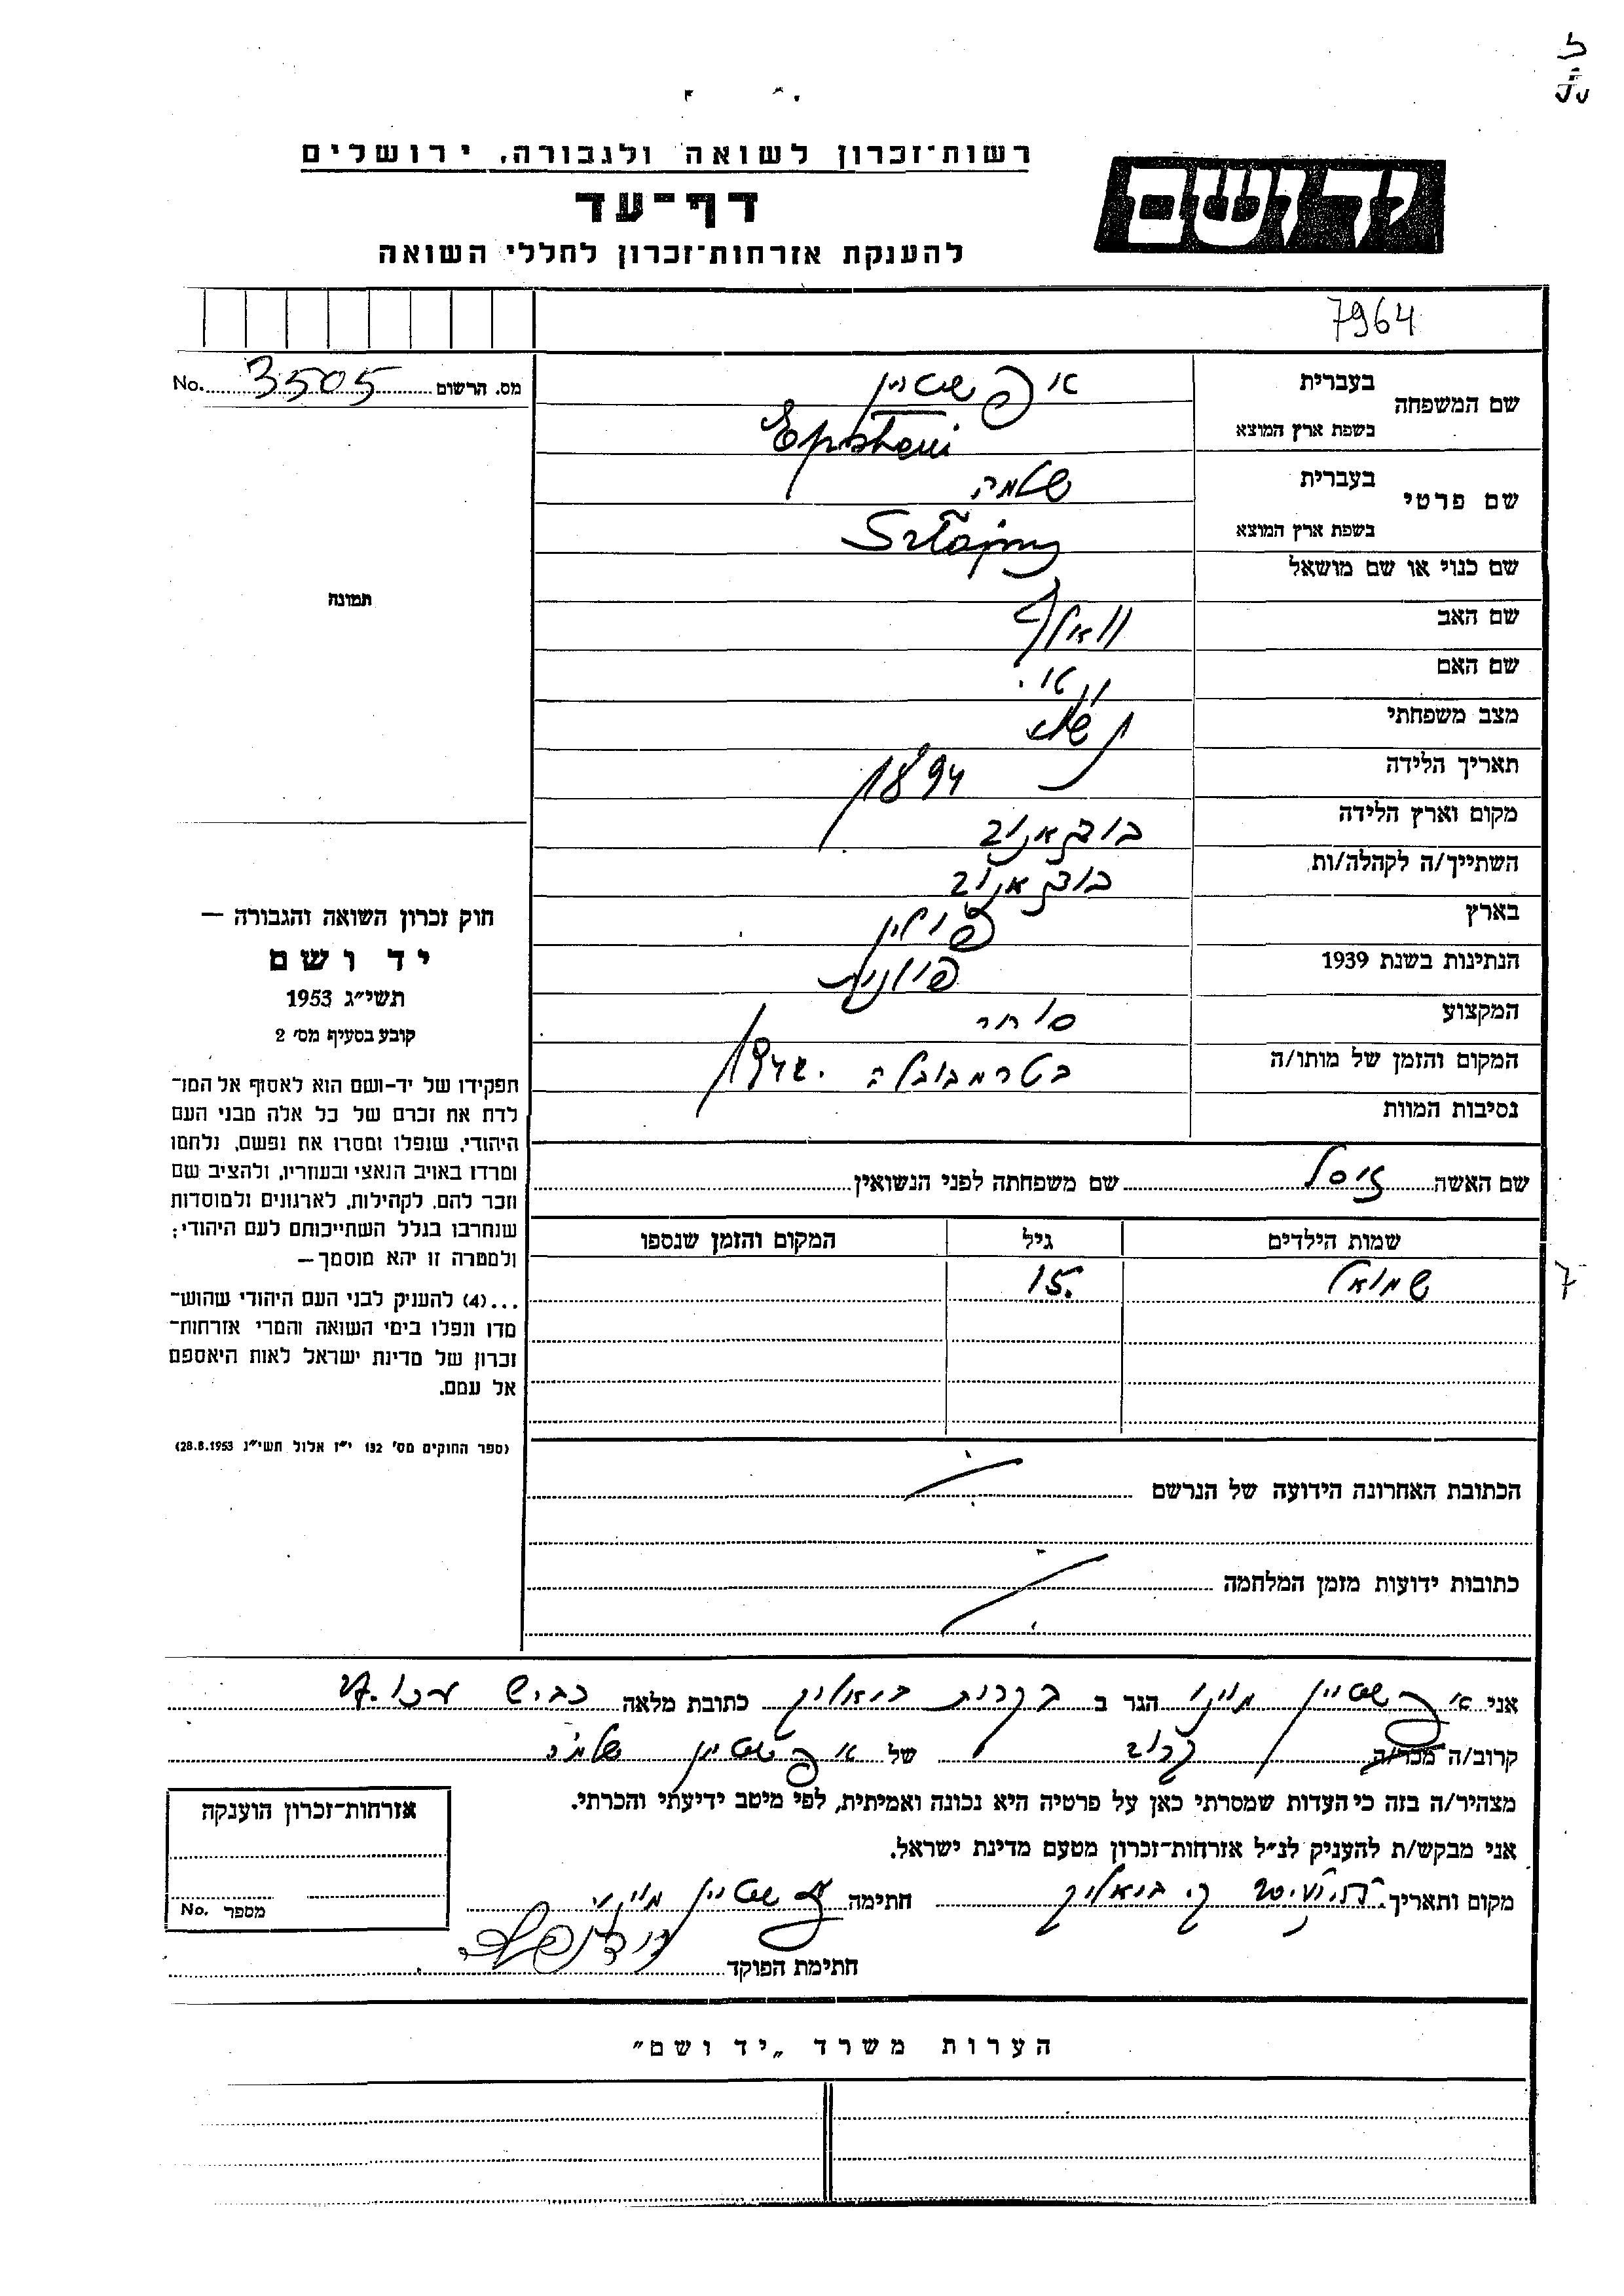 רשות־זכרון לשואה ולגבורה, ירושלים
יד ושם
דף־עד
להענקת אזרחות־זכרון לחללי השואה
7964
מס. הרשום 3505 No.
שם המשפחה בעברית אפשטיין
בשפת ארץ המוצא Epsztein
שם פרטי בעברית שלמה
בשפת ארץ המוצא
שם כנוי או שם מושאל
שם האב וואלף
שם האם
מצב משפחתי נשוי
תאריך הלידה 1894
מקום וארץ הלידה
השתייך/ה לקהלה/ות
בארץ פולין
הנתינות בשנת 1939 פולנית
המקצוע סוחר
המקום והזמן של מותו/ה בטרמבובלה 1942
נסיבות המוות
תמונה
חוק זכרון השואה והגבורה —
יד ושם
תשי״ג 1953
קובע בסעיף מס׳ 2
תפקידו של יד-ושם הוא לאסוף אל המו־
לדת את זכרם של כל אלה מבני העם
היהודי, שנפלו ומסרו את נפשם, נלחמו
ומרדו באויב הנאצי ובעוזריו, ולהציב שם
וזכר להם, לקהילות, לארגונים ולמוסדות
שנחרבו בגלל השתייכותם לעם היהודי;
ולמטרה זו יהא מוסמך—
...(4) להעניק לבני העם היהודי שהוש־
מדו ונפלו בימי השואה והמרי אזרחות־
זכרון של מדינת ישראל לאות היאספם
אל עמם.
(ספר החוקים מס׳ 132 י״ז אלול תשי״ג 28.8.1953)
שם האשה זיסל שם משפחתה לפני הנשואין
שמות הילדים גיל המקום והזמן שנספו
שמואל 15.
7
הכתובת האחרונה הידועה של הנרשם
כתובות ידועות מזמן המלחמה
אני אפשטיין הגר ב בקרית ביאליק כתובת מלאה כביש עכו 27
קרוב/ה מכר/ה קרוב של אפשטיין שלמה
מצהיר/ה בזה כי העדות שמסרתי כאן על פרטיה היא נכונה ואמיתית, לפי מיטב ידיעתי והכרתי.
אני מבקש/ת להעניק לנ״ל אזרחות־זכרון מטעם מדינת ישראל.
מקום ותאריך ק. ביאליק חתימה אפשטיין
חתימת הפוקד
אזרחות־זכרון הוענקה
מספר No.
הערות משרד „יד ושם״